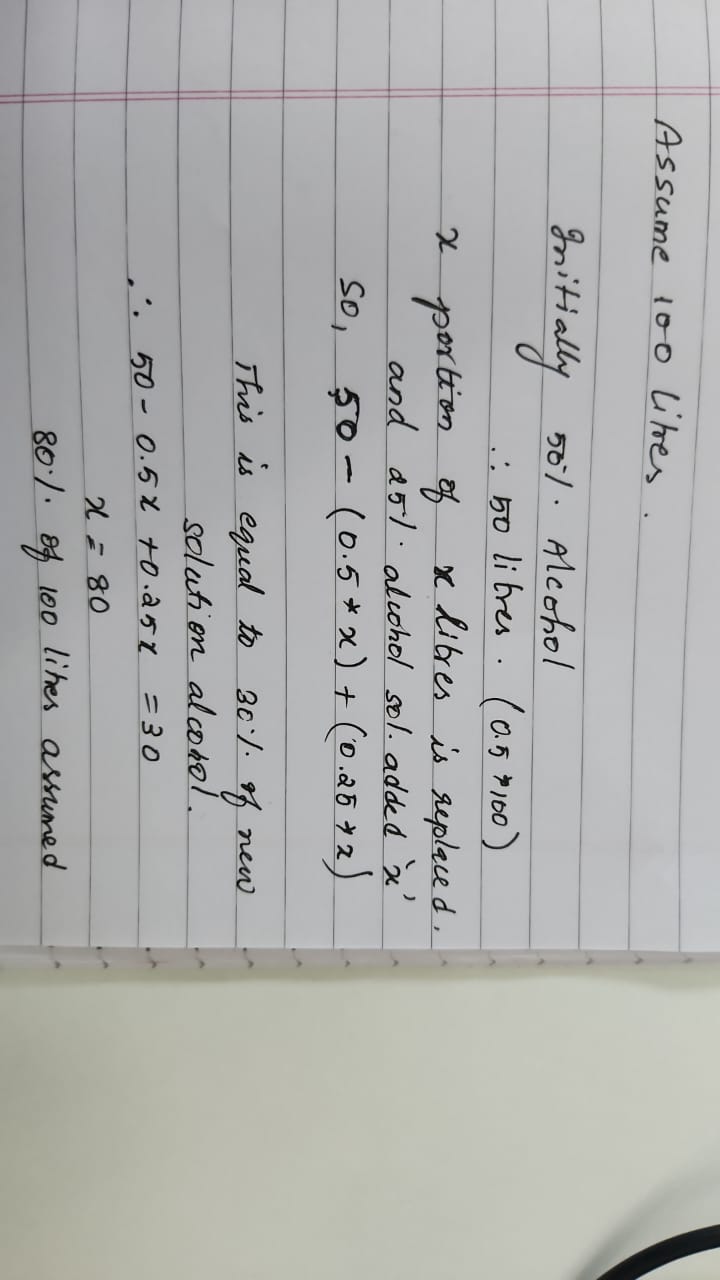 Assume 100 litres.
Initially 50%. Alcohol
∴ 50 litres. (0.5 * 100)
x portion of x litres is replaced.
and 25%. alcohol sol. added 'x'
So, 50 - (0.5 * x) + (0.25 * x)
This is equal to 30%. of new
solution alcohol.
∴ 50 - 0.5x + 0.25x = 30
x = 80
80%. of 100 litres assumed